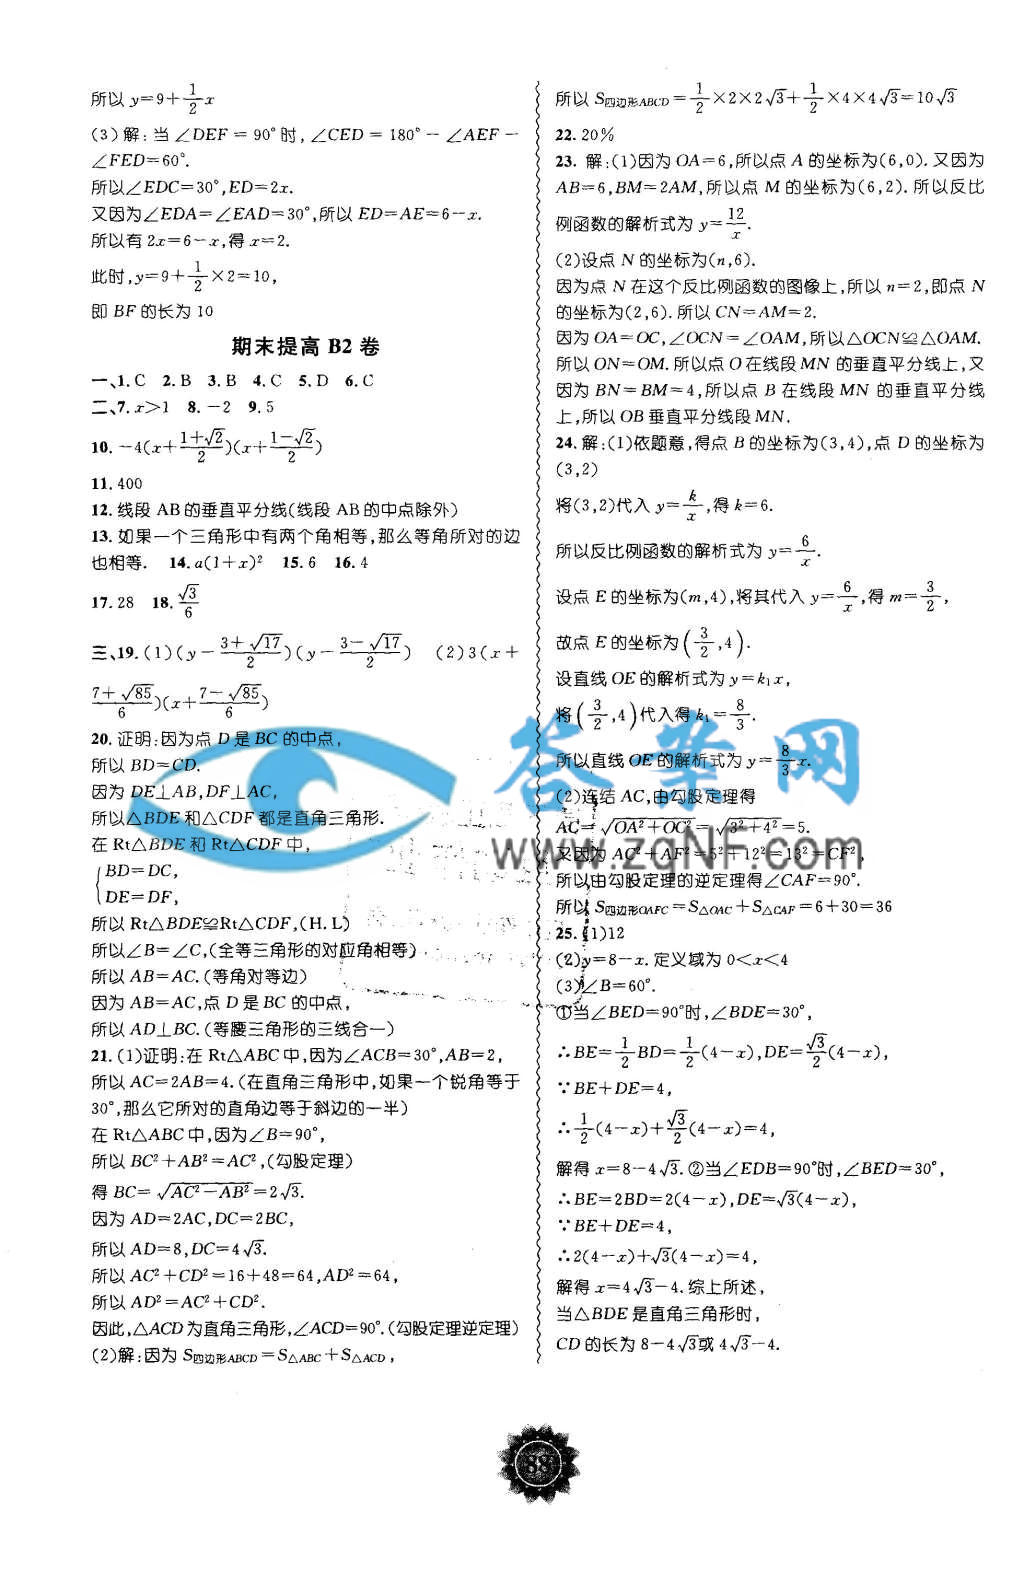 所以 y=9+1/2x
(3)解:当∠DEF=90°时,∠CED=180°-∠AEF-
∠FED=60°.
所以∠EDC=30°,ED=2x.
又因为∠EDA=∠EAD=30°,所以 ED=AE=6-x.
所以有 2x=6-x,得 x=2.
此时,y=9+1/2×2=10,
即 BF 的长为 10
期末提高 B2 卷
一、1.C 2.B 3.B 4.C 5.D 6.C
二、7.x>1 8.-2 9.5
10.-4(x+(1+√2)/2)(x+(1-√2)/2)
11.400
12.线段 AB 的垂直平分线(线段 AB 的中点除外)
13.如果一个三角形中有两个角相等,那么等角所对的边
也相等. 14.a(1+x)² 15.6 16.4
17.28 18.√3/6
三、19.(1)(y-(3+√17)/2)(y-(3-√17)/2) (2)3(x+
(7+√85)/6)(x+(7-√85)/6)
20.证明:因为点 D 是 BC 的中点,
所以 BD=CD.
因为 DE⊥AB,DF⊥AC,
所以△BDE 和△CDF 都是直角三角形.
在 Rt△BDE 和 Rt△CDF 中,
{BD=DC,
DE=DF,
所以 Rt△BDE≌Rt△CDF,(H.L)
所以∠B=∠C,(全等三角形的对应角相等)
所以 AB=AC.(等角对等边)
因为 AB=AC,点 D 是 BC 的中点,
所以 AD⊥BC.(等腰三角形的三线合一)
21.(1)证明:在 Rt△ABC 中,因为∠ACB=30°,AB=2,
所以 AC=2AB=4.(在直角三角形中,如果一个锐角等于
30°,那么它所对的直角边等于斜边的一半)
在 Rt△ABC 中,因为∠B=90°,
所以 BC²+AB²=AC²,(勾股定理)
得 BC=√(AC²-AB²)=2√3.
因为 AD=2AC,DC=2BC,
所以 AD=8,DC=4√3.
所以 AC²+CD²=16+48=64,AD²=64,
所以 AD²=AC²+CD².
因此,△ACD 为直角三角形,∠ACD=90°.(勾股定理逆定理)
(2)解:因为 S四边形ABCD=S△ABC+S△ACD,
所以 S四边形ABCD=1/2×2×2√3+1/2×4×4√3=10√3
22.20%
23.解:(1)因为 OA=6,所以点 A 的坐标为(6,0).又因为
AB=6,BM=2AM,所以点 M 的坐标为(6,2).所以反比
例函数的解析式为 y=12/x.
(2)设点 N 的坐标为(n,6).
因为点 N 在这个反比例函数的图像上,所以 n=2,即点 N
的坐标为(2,6).所以 CN=AM=2.
因为 OA=OC,∠OCN=∠OAM,所以△OCN≌△OAM.
所以 ON=OM.所以点 O 在线段 MN 的垂直平分线上,又
因为 BN=BM=4,所以点 B 在线段 MN 的垂直平分线
上,所以 OB 垂直平分线段 MN.
24.解:(1)依题意,得点 B 的坐标为(3,4),点 D 的坐标为
(3,2)
将(3,2)代入 y=k/x,得 k=6.
所以反比例函数的解析式为 y=6/x.
设点 E 的坐标为(m,4),将其代入 y=6/x,得 m=3/2,
故点 E 的坐标为(3/2,4).
设直线 OE 的解析式为 y=k₁x,
将(3/2,4)代入得 k₁=8/3.
所以直线 OE 的解析式为 y=8/3x.
(2)连结 AC,由勾股定理得
AC=√(OA²+OC²)=√(3²+4²)=5.
又因为 AC²+AF²=5²+12²=13²=CF²,
所以由勾股定理的逆定理得∠CAF=90°.
所以 S四边形OAFC=S△OAC+S△CAF=6+30=36
25.(1)12
(2)y=8-x.定义域为 0<x<4
(3)∠B=60°.
①当∠BED=90°时,∠BDE=30°,
∴BE=1/2BD=1/2(4-x),DE=√3/2(4-x),
∵BE+DE=4,
∴1/2(4-x)+√3/2(4-x)=4,
解得 x=8-4√3.②当∠EDB=90°时,∠BED=30°,
∴BE=2BD=2(4-x),DE=√3(4-x),
∵BE+DE=4,
∴2(4-x)+√3(4-x)=4,
解得 x=4√3-4.综上所述,
当△BDE 是直角三角形时,
CD 的长为 8-4√3或 4√3-4.
答案网
www.zqNF.com
88